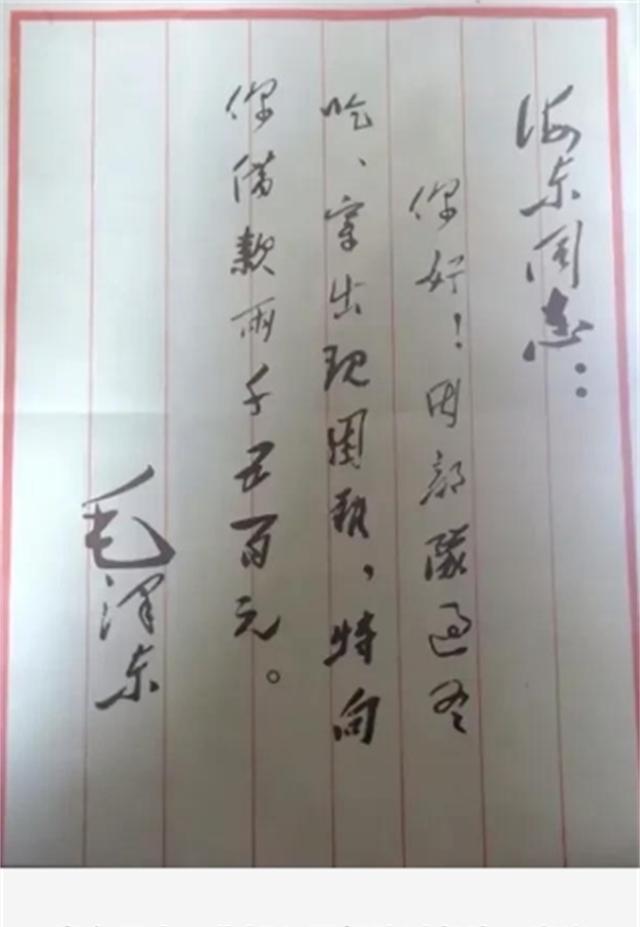 海东同志:
你好!因部队过冬
吃、穿出现困难,特向
你借款两千五百元。
毛泽东